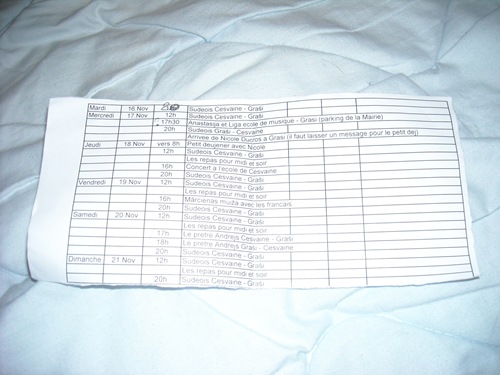 Mardi 16 Nov 20 Sudeois Cesvaine - Graši
Mercredi 17 Nov 12h Sudeois Cesvaine - Graši
17h30 Anastasija et Liga ecole de musique - Graši (parking de la Mairie)
20h Sudeois Graši - Cesvaine
Arrivée de Nicole à Graši (il faut laisser un message pour le petit dej)
Jeudi 18 Nov vers 8h Petit deujener avec Nicole
12h Sudeois Cesvaine - Graši
Les repas pour midi et soir
16h Concert a l'ecole de Cesvaine
20h Sudeois Cesvaine - Graši
Vendredi 19 Nov 12h Sudeois Cesvaine - Graši
Les repas pour midi et soir
16h Mārcienas muiža avec les francais
20h Sudeois Cesvaine - Graši
Samedi 20 Nov 12h Sudeois Cesvaine - Graši
Les repas pour midi et soir
17h Le pretre Andrejs Cesvaine - Graši
18h Le pretre Andrejs Graši - Cesvaine
20h Sudeois Cesvaine - Graši
Dimanche 21 Nov 12h Sudeois Cesvaine - Graši
Les repas pour midi et soir
20h Sudeois Cesvaine - Graši